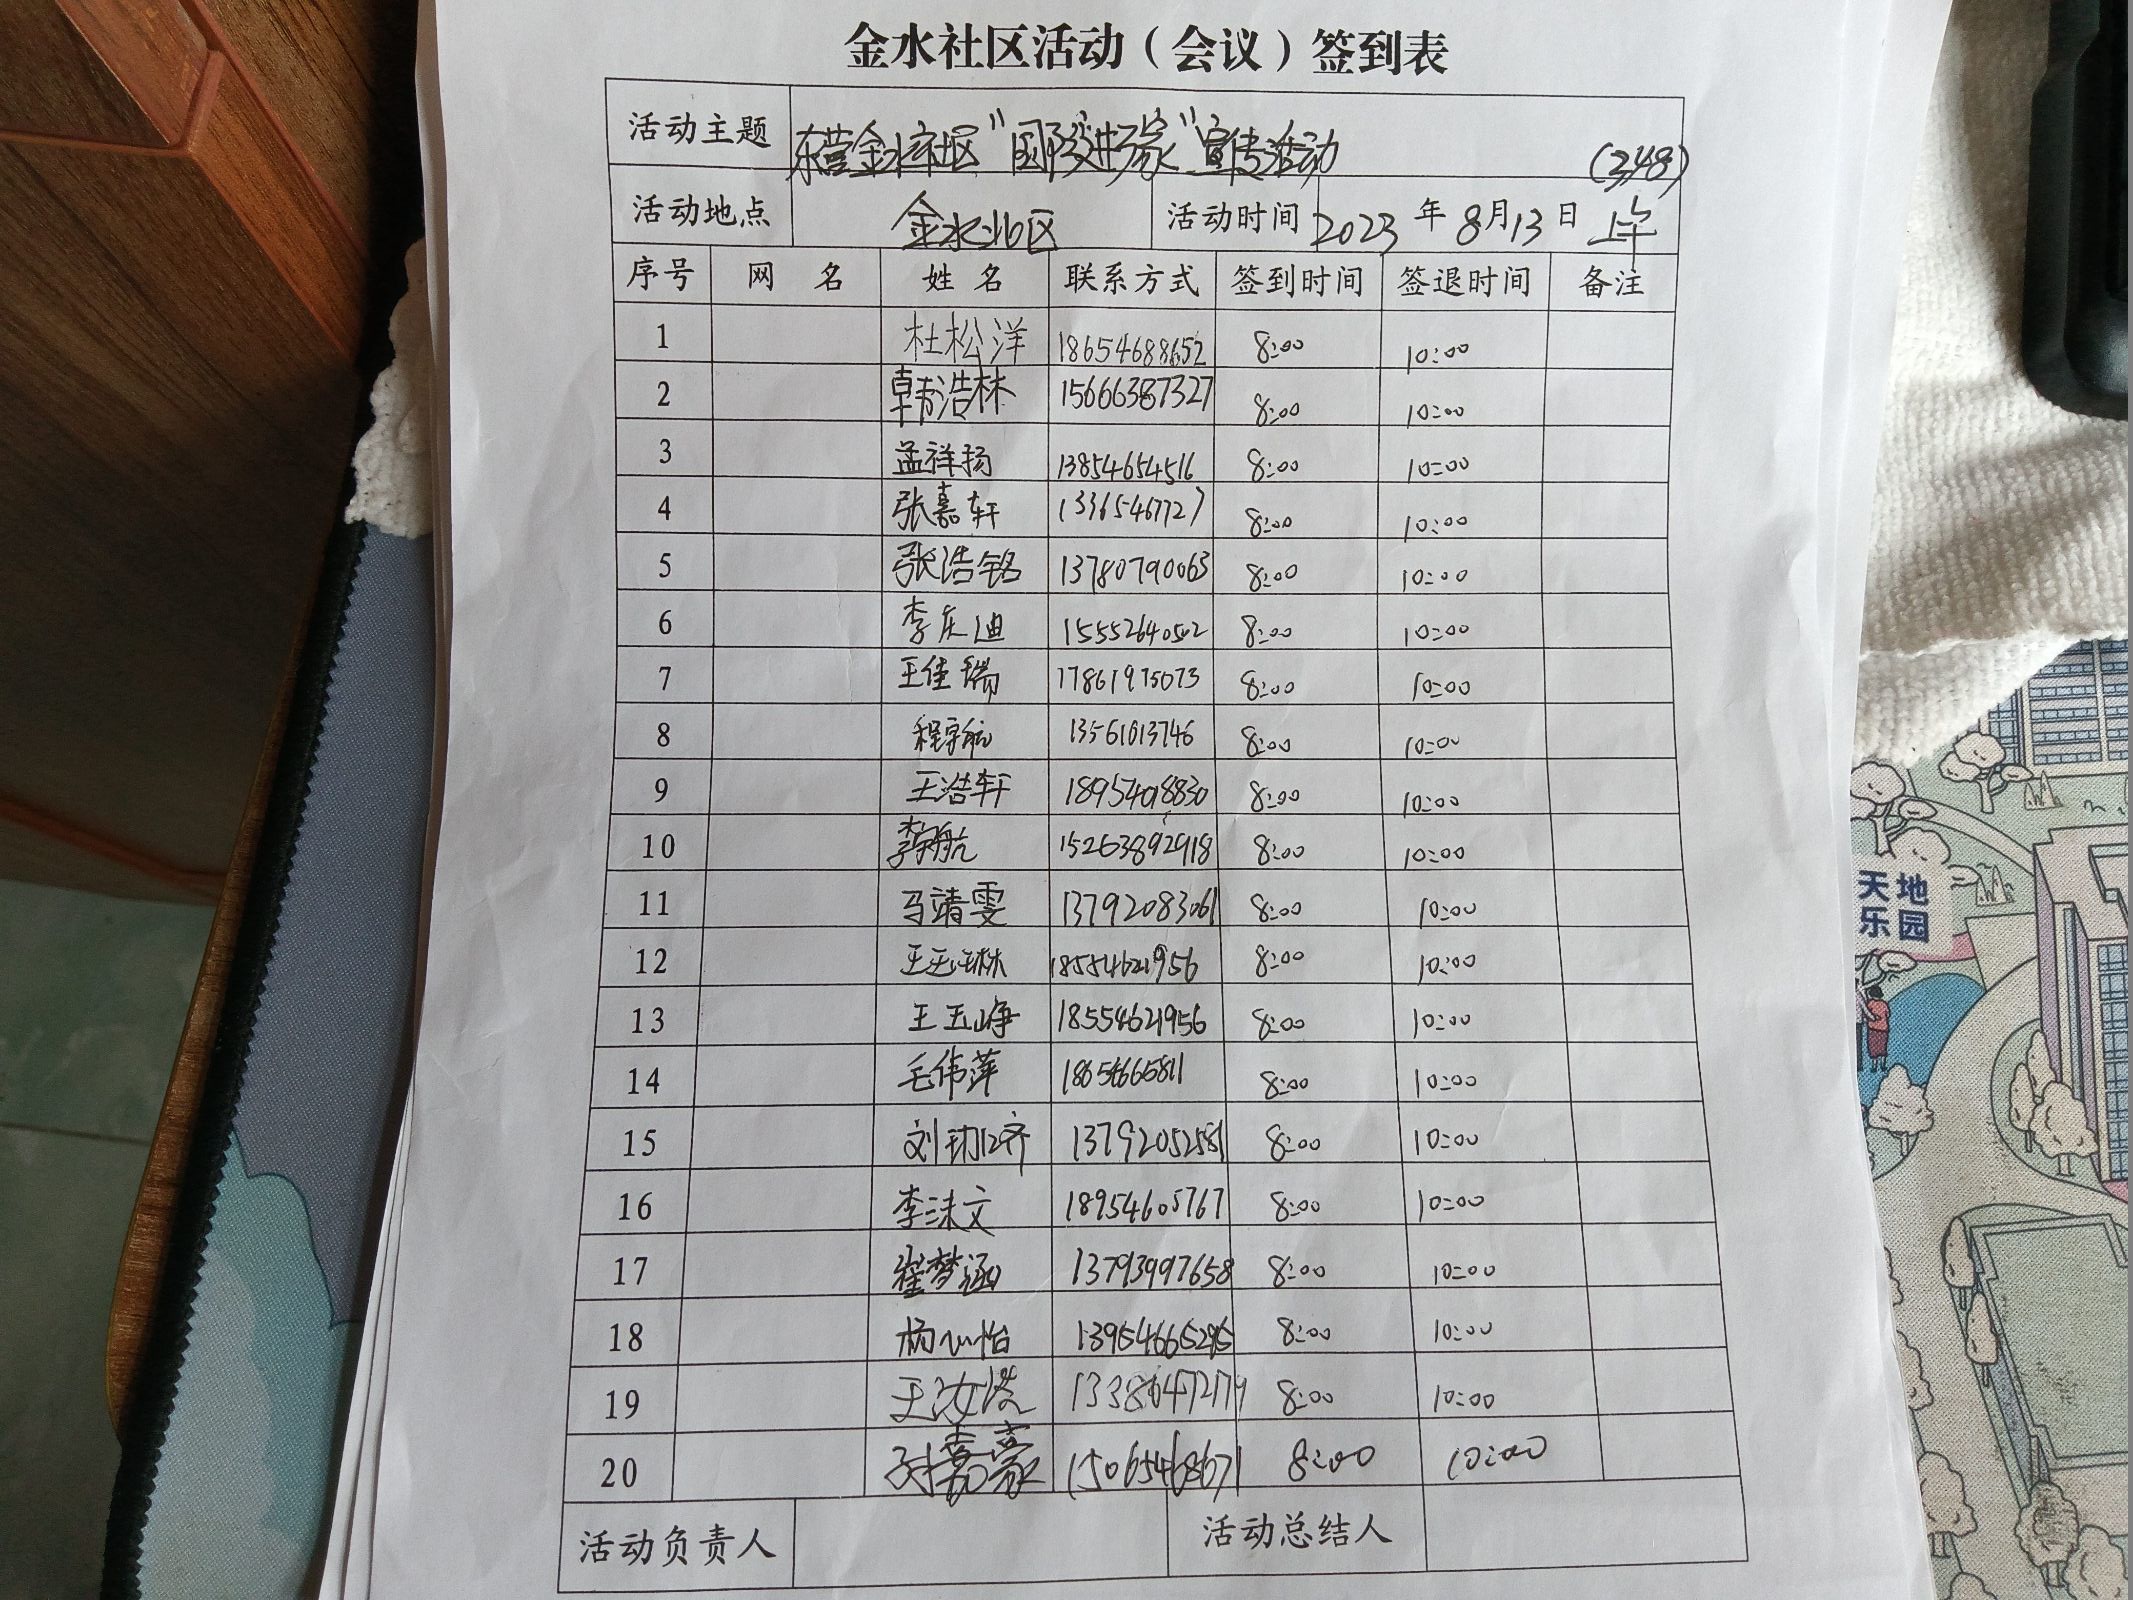 金水社区活动（会议）签到表
活动主题 东营金水社区“国防进万家”宣传活动 (248)
活动地点 金水北区 活动时间 2023 年 8 月 13 日 上午
序号 网 名 姓 名 联系方式 签到时间 签退时间 备注
1 杜松洋 18654688652 8:00 10:00
2 韩浩林 15666387327 8:00 10:00
3 孟祥扬 13854654516 8:00 10:00
4 张嘉轩 13365467727 8:00 10:00
5 张浩铭 13780790063 8:00 10:00
6 李东迪 15552640502 8:00 10:00
7 王佳瑞 17861975073 8:00 10:00
8 程宇航 13561013746 8:00 10:00
9 王浩轩 18954018830 8:00 10:00
10 李宇航 15263892918 8:00 10:00
11 马靖雯 13792083061 8:00 10:00
12 王玉琳 18554621956 8:00 10:00
13 王玉峥 18554621956 8:00 10:00
14 毛伟萍 8:00 10:00
15 13792052581 8:00 10:00
16 李沫文 18954605767 8:00 10:00
17 崔梦涵 13793997658 8:00 10:00
18 杨心怡 13954665295 8:00 10:00
19 8:00 10:00
20 15065468671 8:00 10:00
活动负责人 活动总结人
天地
乐园